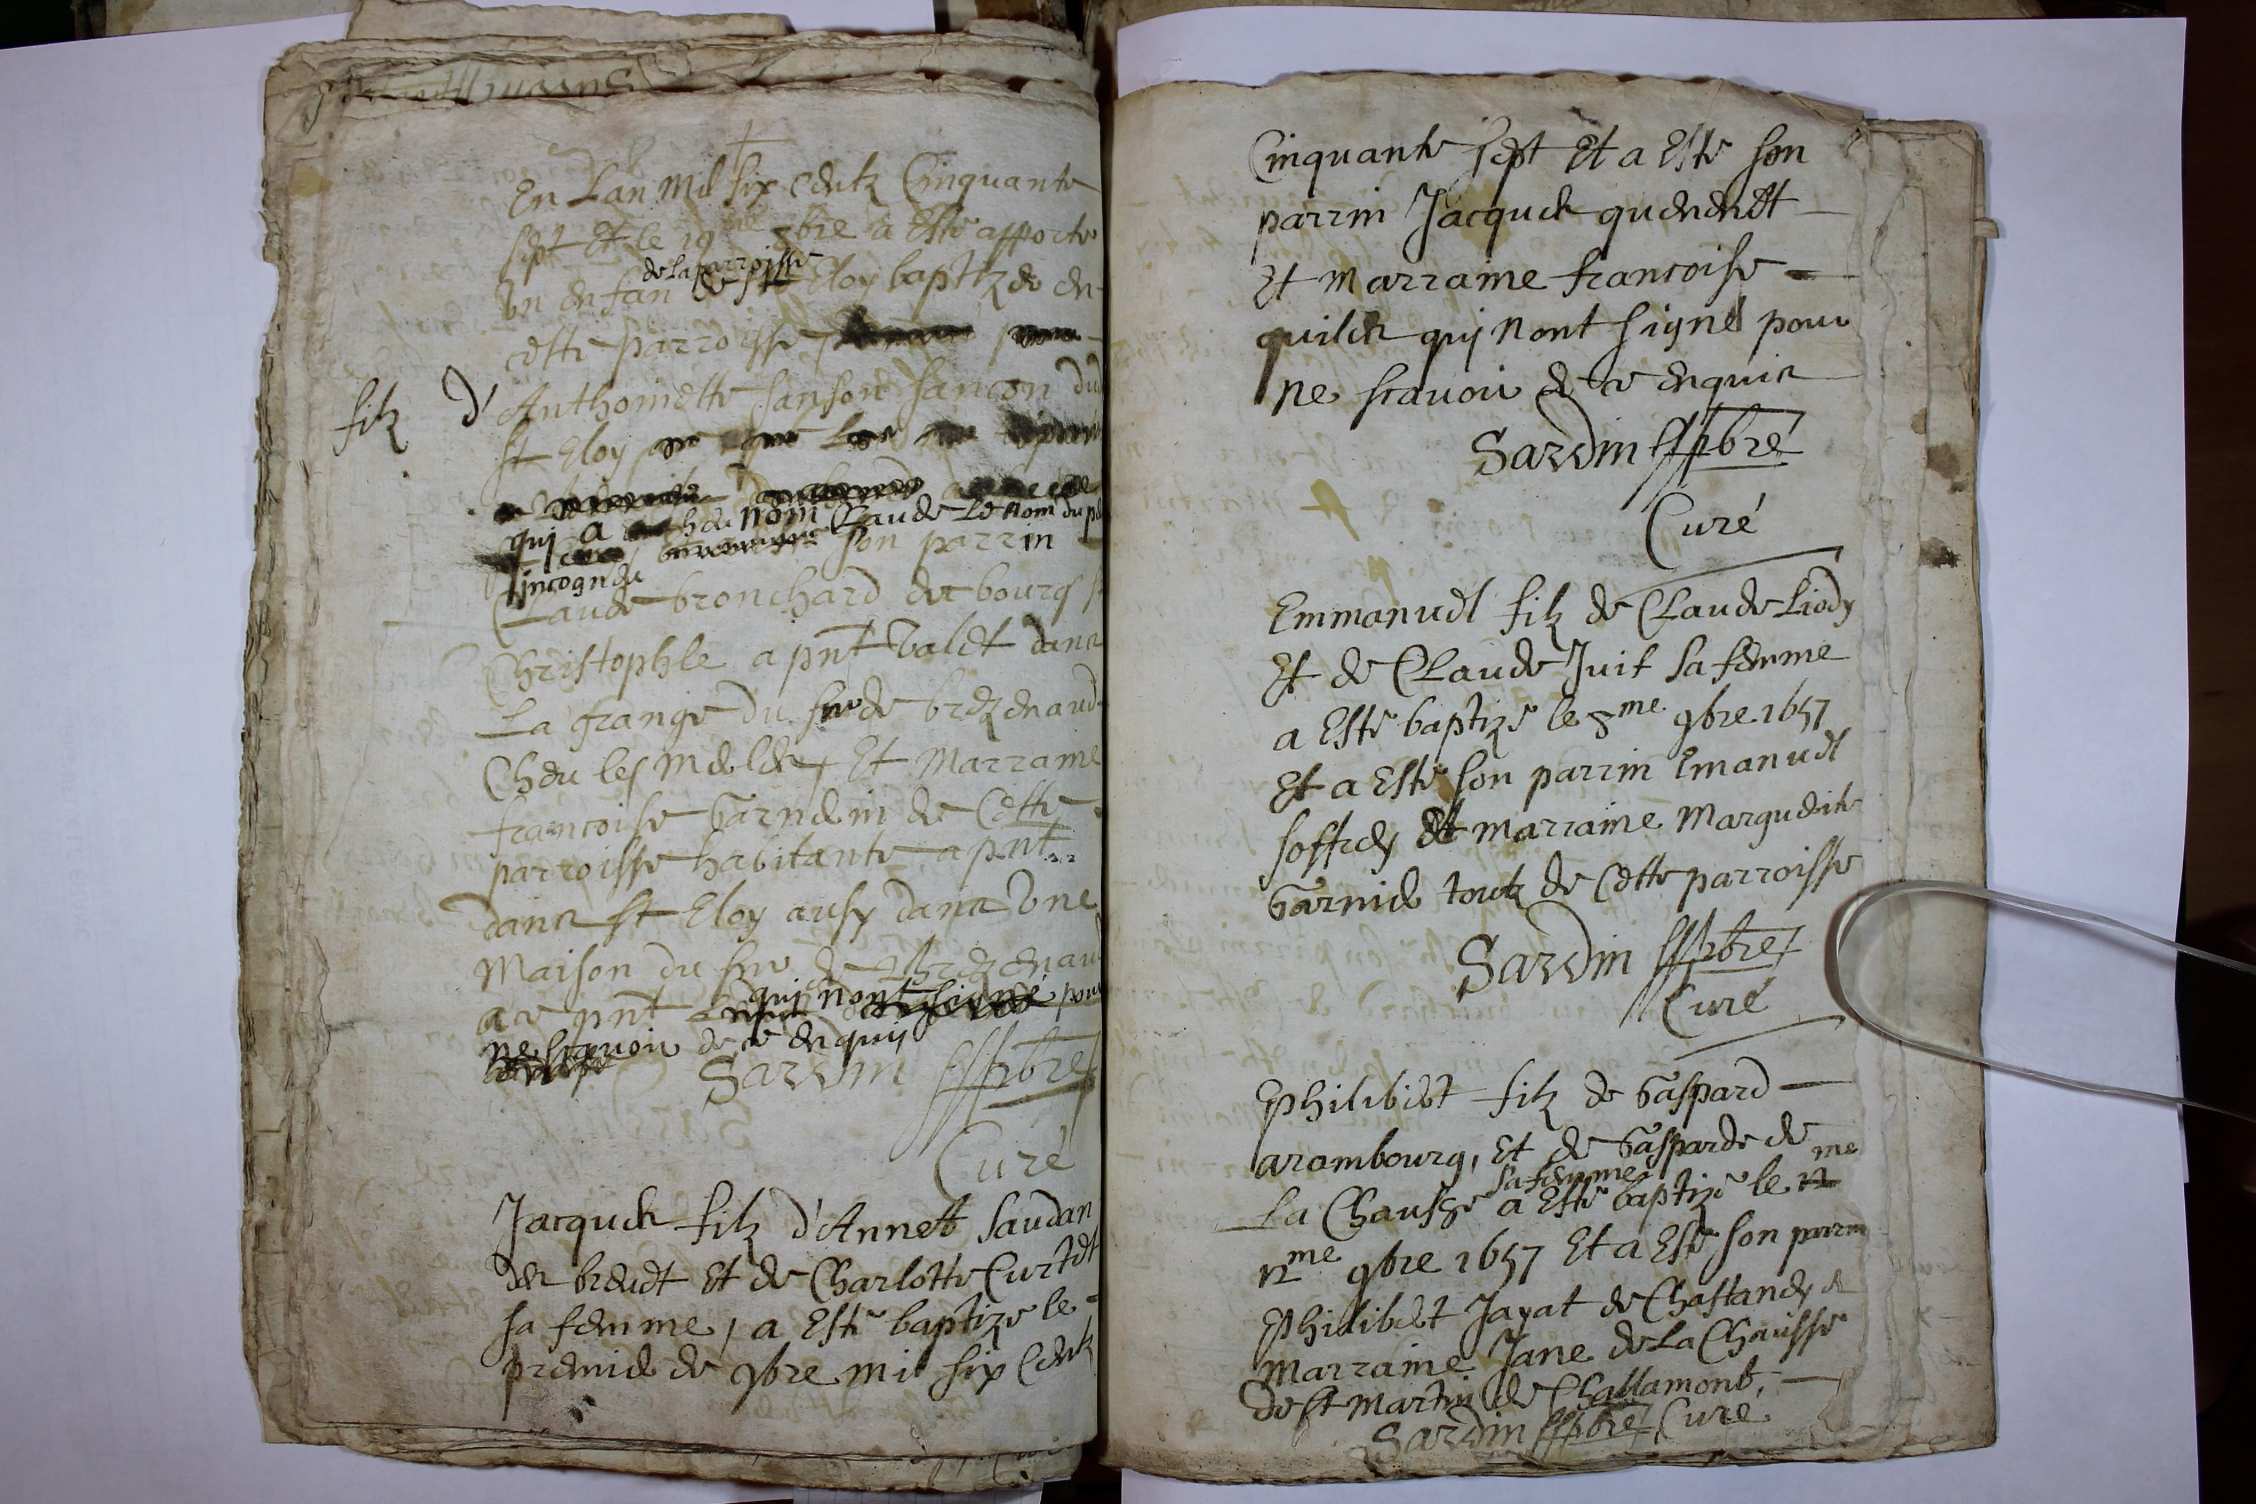 En Lan Mil six centz Cinquante
sept Et le 19me 8bre a Esté apporte
de la parroisse
Un enfan de St Eloy baptizée en
cette parroisse
filz d'Anthoinette Sanson Sancon du
St Eloy
qui a nom Claude Le nom du pe
incogneu son parrin
Claude bronchard de bourg St
Christophle a pnt Valet dans
La grange du Sr de brezenaud
Cheu les Meles, Et Marraine
francoise Garnein de Cette
parroisse habitante a pnt
dans St Eloy ausy dans Une
Maison du Sr de Brezenaud
a ce pnt qui nont signé pour
ne scavoir de ce enquis
Sardin pbre
Curé
Jacques filz d'Annett Saudan
des breuet Et de Charlotte Curtet
sa femme, a Esté baptize le
premie de 9bre mil six Centz
Cinquante sept Et a Este son
parrin Jacques quenenet
Et Marraine francoise
quiles qui nont signes pour
ne scavoir de ce enquis
Sardin pbre
Curé
Emmanuel filz de Claude Liody
Et de Claude Juit sa femme
a Esté baptizé le 8me 9bre 1657
Et a Esté son parrin Emanuel
soffrey Et marraine Margueite
Garnie toutz de Cette parroisse
Sardin pbre
Curé
Philibet filz de Gaspard
arambourg, Et de Gasparde de
sa femme
La Chausse a Esté baptizé le
12me 9bre 1657 Et a Esté son parrin
Philibet Jayat de Chastaney et
Marraine Jane de La Chausse
de St Martin de Challamont,
Sardin pbre Curé